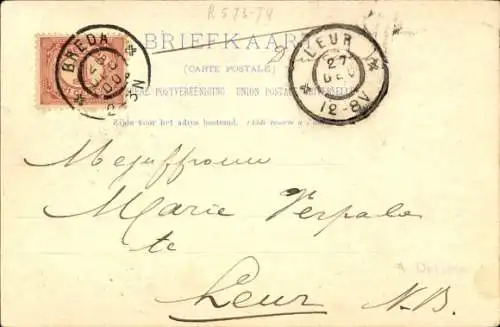 R 573-74
BRIEFKAART
(CARTE POSTALE)
POSTVEREENIGING UNION POSTALE UNIVERSELLE
Zijde voor het adres bestemd. (Côté réservé à
BREDA
LEUR
27
DEC
12-8V
Mejuffrouw
Marie Verpalen
te
Leur N.B.